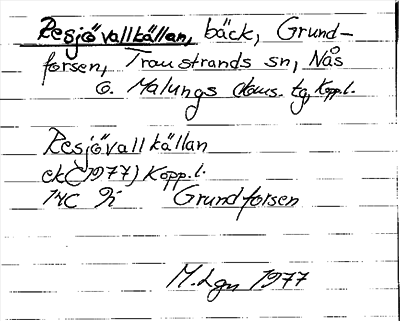 Resjövallkällan, bäck, Grund-
forsen, Transtrands sn, Nås
o. Malungs doms. tg, Kopp.l.
Resjövallkällan
ek (1977) Kopp.l.
14C 9i Grundforsen
M. Lgn 1977